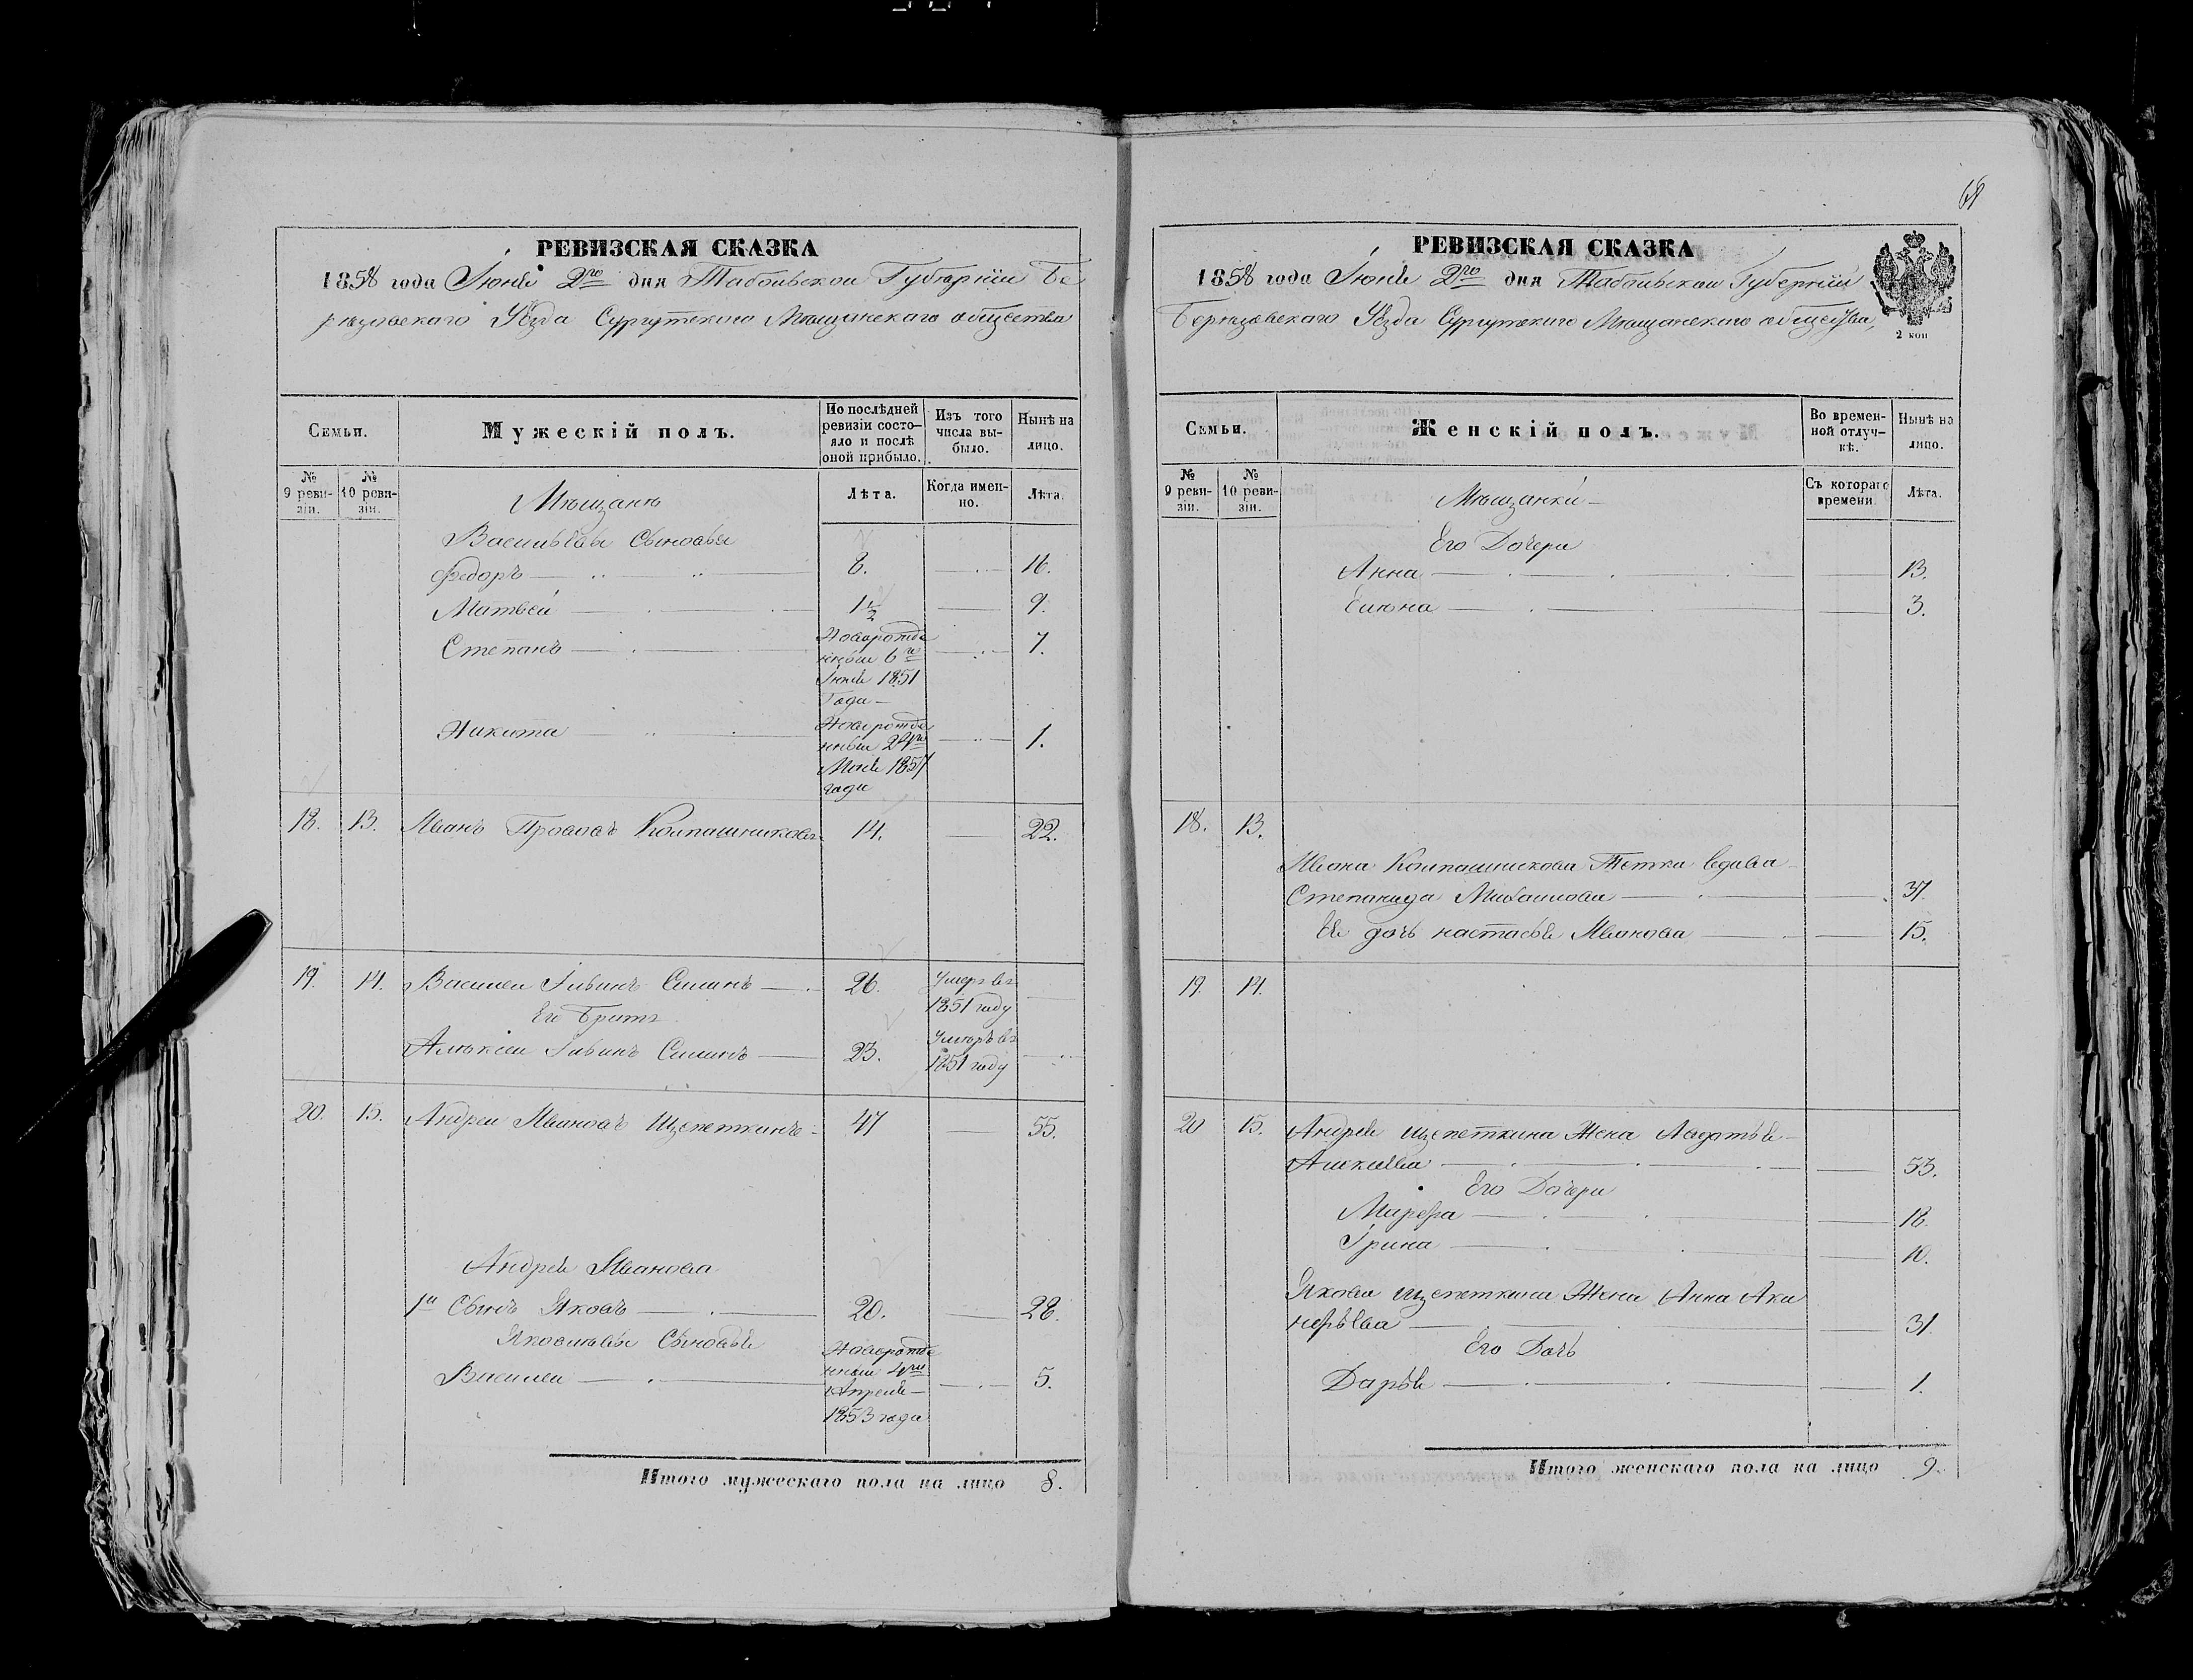 68
РЕВИЗСКАЯ СКАЗКА
1858 года Іюня 2го дня Табольской Губерніи Бе
рюзовскаго Уѣзда Сургутскаго Мющанскаго общества
Семьи.
Мужескій полъ.
По послѣдней ревизіи состо-яло и послѣ оной прибыло.
Изъ того числа вы-было.
Нынѣ на лицо.
№ 9 реви-зіи.
№ 10 реви-зіи.
Лѣта.
Когда имен-но.
Лѣта.
Мющанѣ
Васильевы Сыновья
Федоръ 8. 16.
Матвей 1½ 9.
Степанъ Новорожде
нный 6го 7.
Іюня 1851
Года
Никита Новорожде
нный 24го 1.
Моия 1857
года
18. 13. Иванъ Прововъ Колпашниковъ 14. 22.
19. 14. Василеи Гивинъ Силинъ 26. Умеръ въ
1851 году
Его Братъ
Алюксеи Гивинъ Силинъ 23. Умюръ въ
1851 году
20. 15. Андреи Ивановъ Щепеткинъ 47 55.
Андрея Иванова
1й Сынъ Яковъ 20. 28.
Яковлювы Сыновья
Василеи Новорожде
нный 4го 5.
Апреля
1853 года
Итого мужескаго пола на лицо 8.
РЕВИЗСКАЯ СКАЗКА
1858 года Іюня 2го дня Табольской Губерніи
Берюзовскаго Уѣзда Сургутскаго Мющанскаго общества,
2 коп
Семьи.
Женскій полъ.
Во времен-ной отлуч-кѣ.
Нынѣ на лицо.
№ 9 реви-зіи.
№ 10 реви-зіи.
Съ котораго времени
Лѣта.
Мющанки
Его Дочери
Анна 13.
Елюна 3.
18. 13.
Ивана Колпашникова Тетка вдава
Степанида Михаилова 37.
Ее дочь настасья Иванова 15.
19. 14.
20 15. Андрея щепеткина Жена Авдотья
Алексева 53.
Его Дочери
Марфа 18.
Ірина 10.
Якова щепеткина Жена Анна Ака
нфѣева 31
Его Дочь
Дарья 1.
Итого женскаго пола на лицо 9.